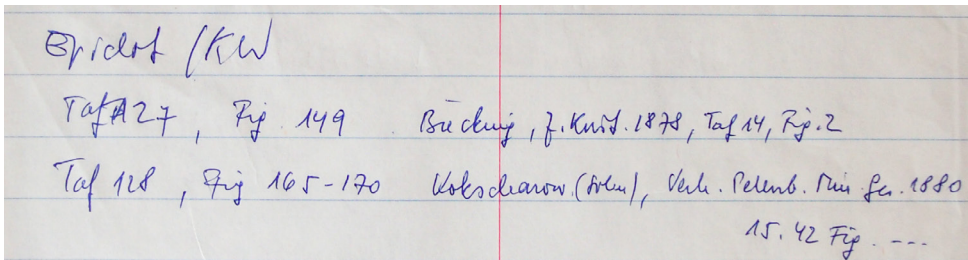 Epidot /KW
Taf 127, Fig. 149 Bücking, Z. Krist. 1878, Taf 14, Fig. 2
Taf 128, Fig 165-170 Kokscharow. (Sohn), Verh. Petersb. Min Ges. 1880
15. 42 Fig. ---